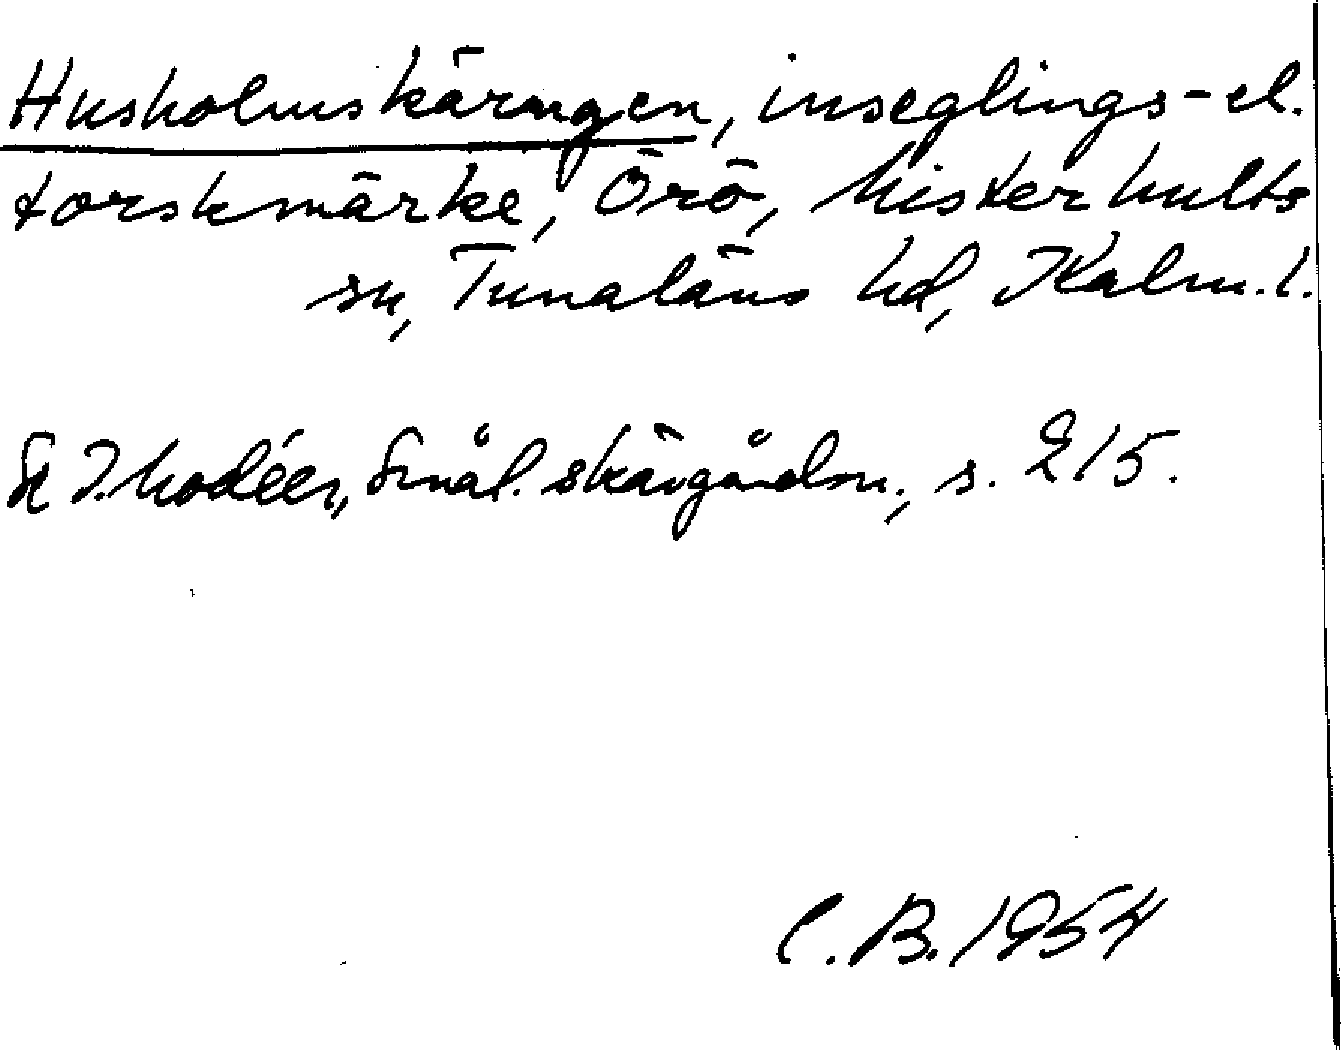 Husholmskäringen, inseglings- el.
torskmärke, Örö, Misterhults
sn, Tunaläns hd, Kalm. l.
I. Modéer, Smål. skärgårdsn., s. 215.
C. B. 1954